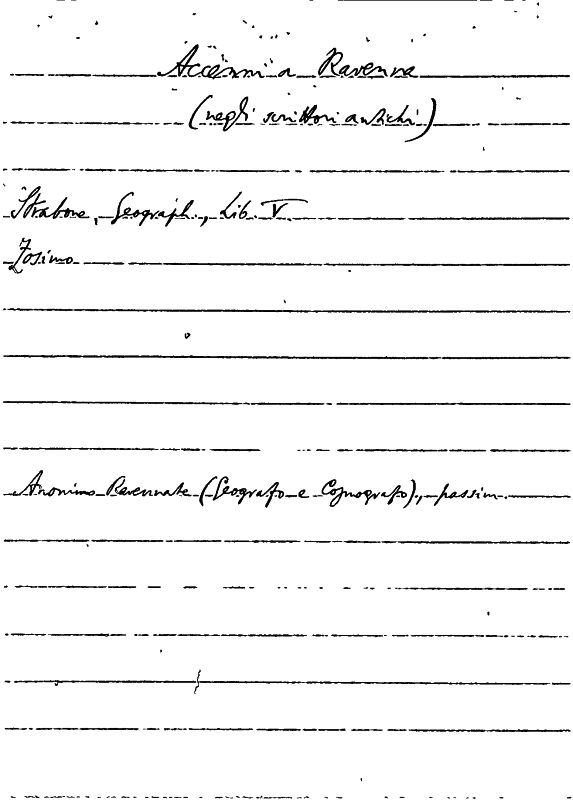 Accenni a Ravenna
(negli scrittori antichi)
Strabone, Geograph., Lib. V.
Zosimo
Anonimo Ravennate (Geografo e Cosmografo), passim.